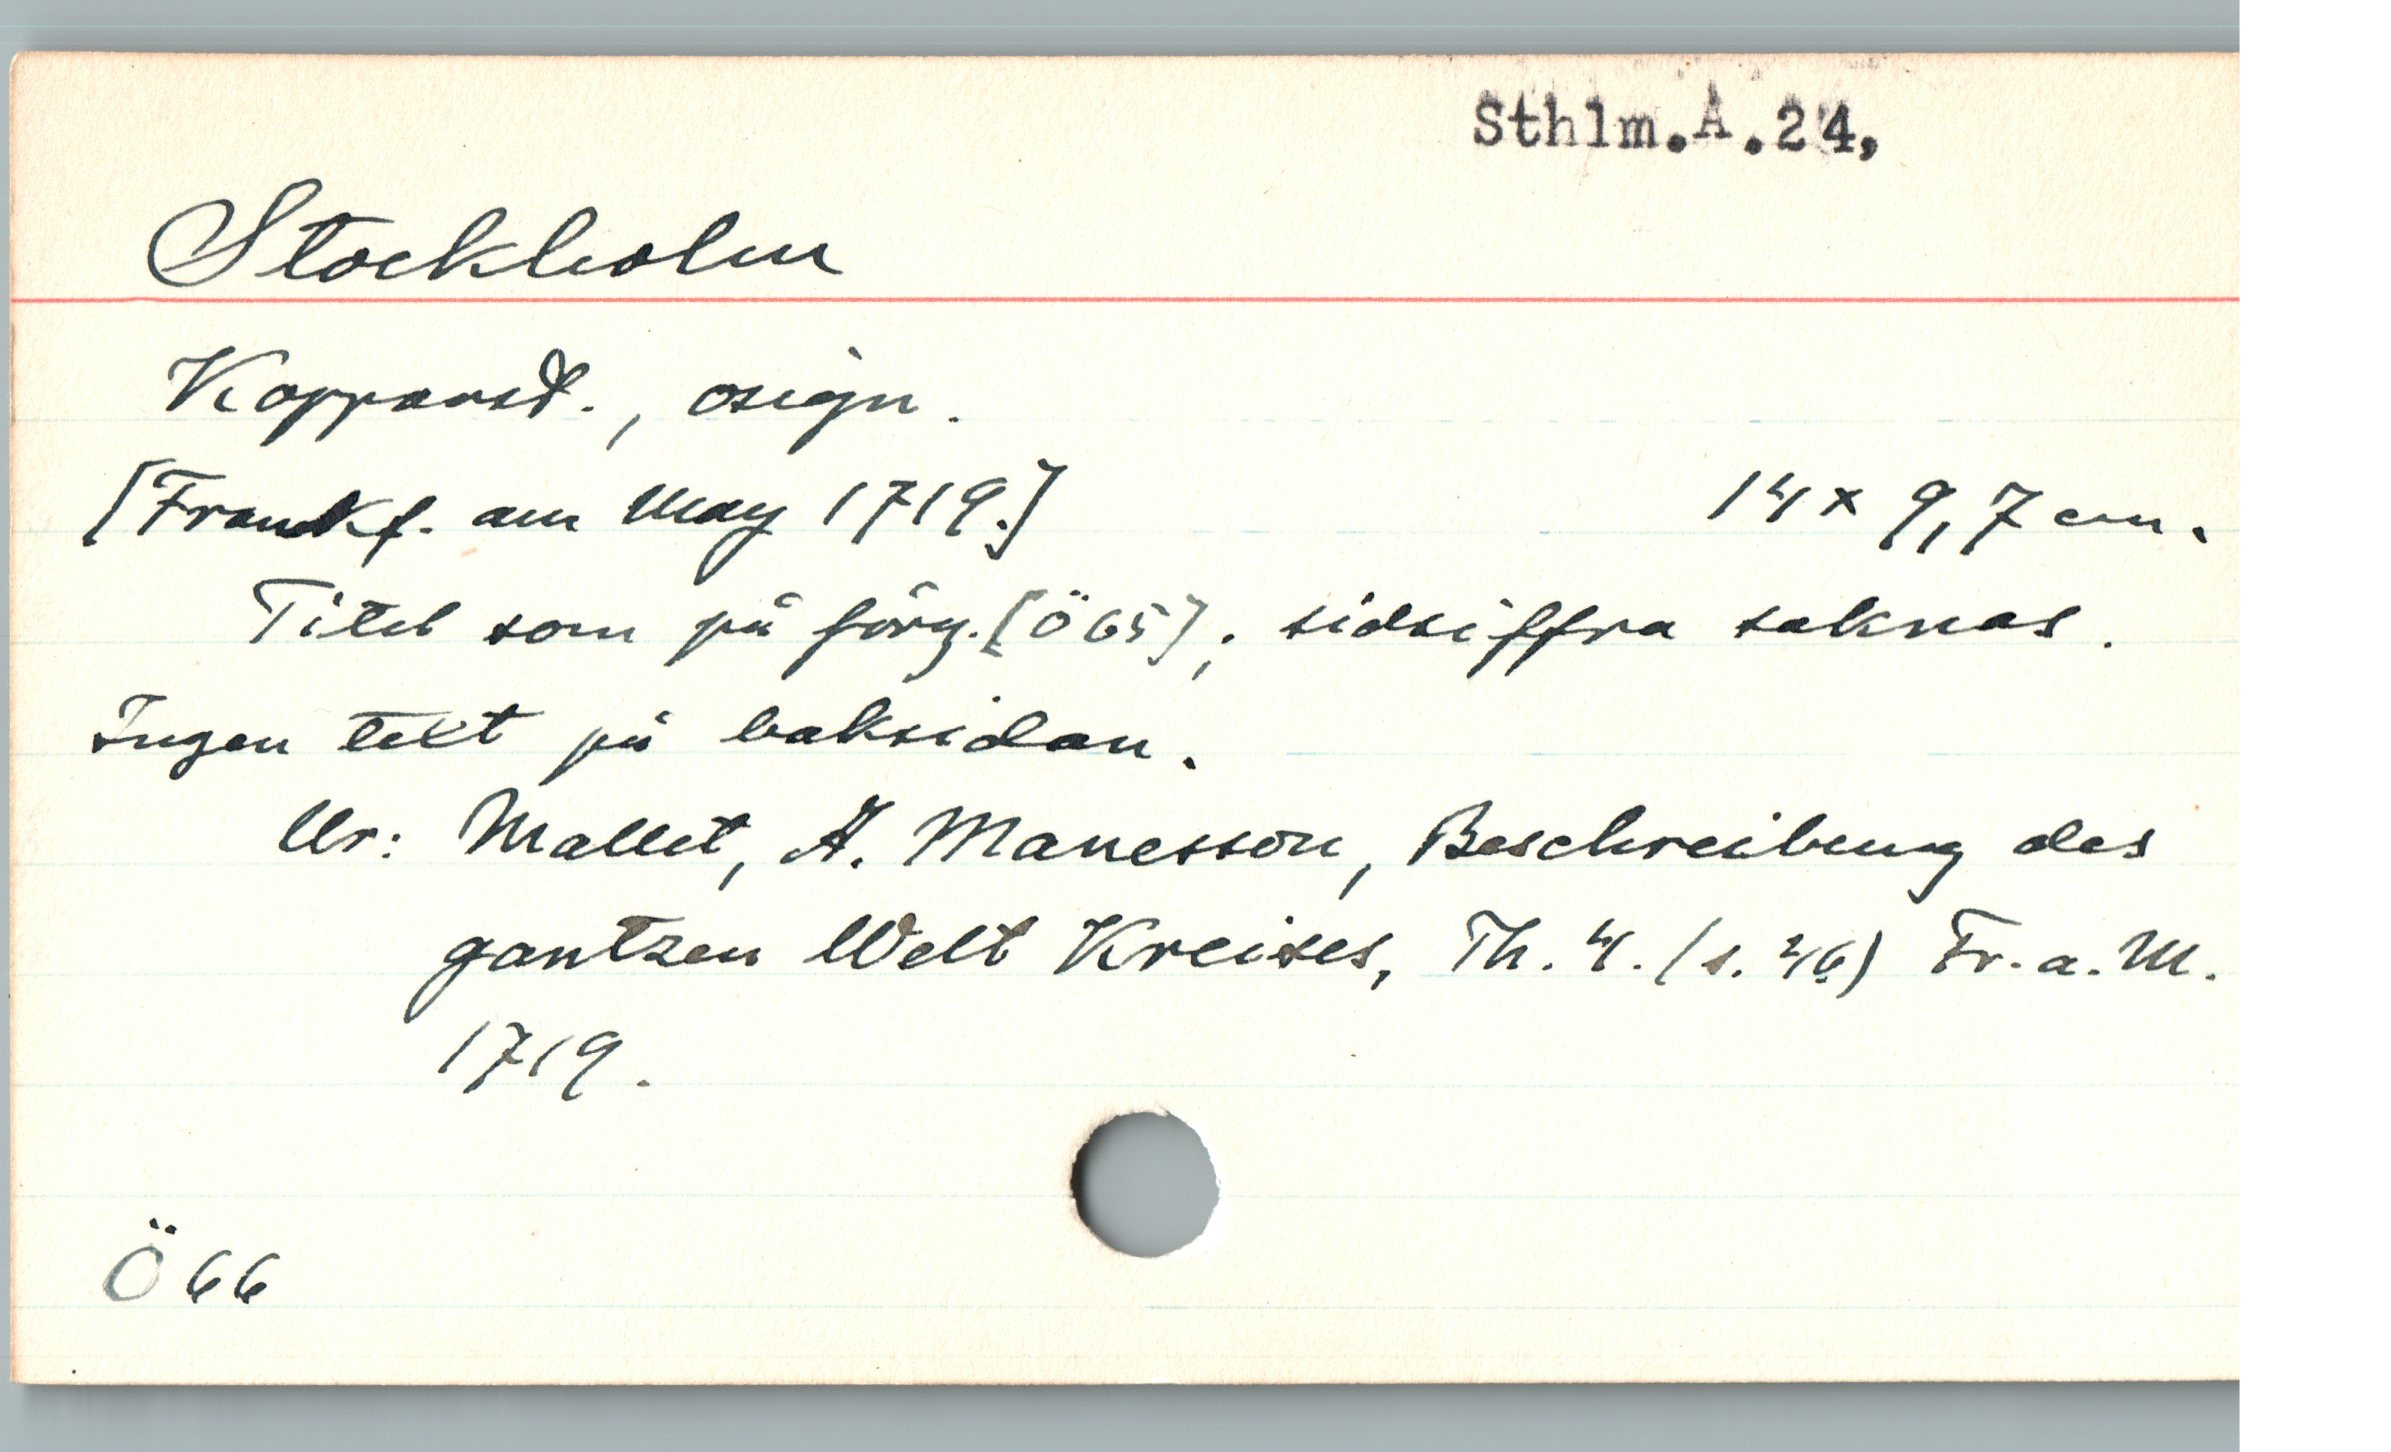 Sthlm.A.24,
Stockholm
Kopparst., osign.
[Frankf. am May 1719.] 14 x 9,7 cm.
Titel som på föreg. [Ö 65]; sidsiffra saknas.
Ingen text på baksidan.
Ur: Mallet, A. Manesson, Beschreibung des
gantzen Welt Kreises, Th. 4. (s. 46) Fr. a. M.
1719.
Ö 66